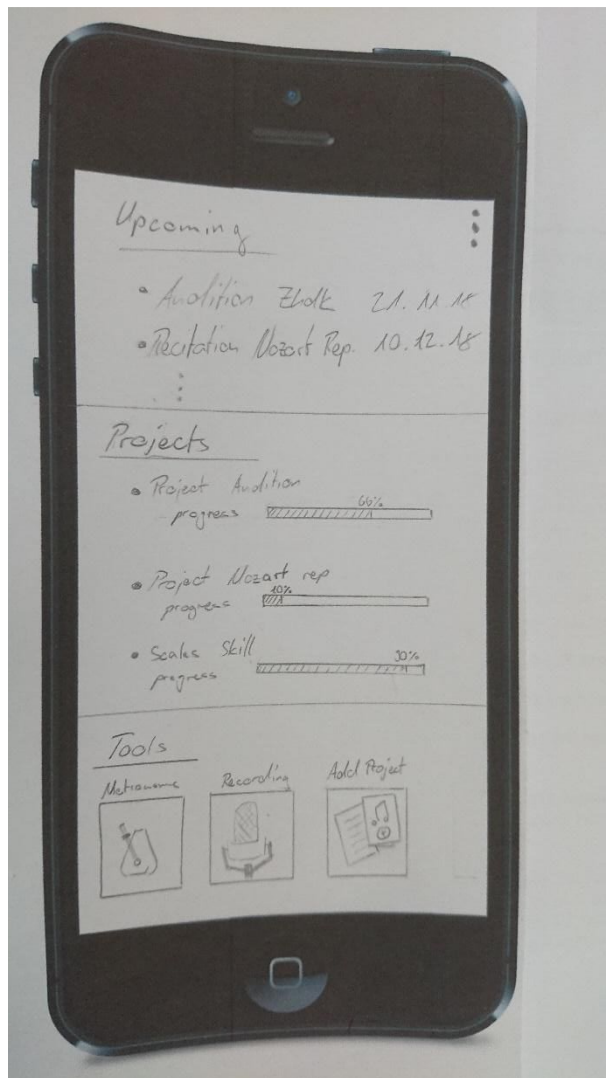 Upcoming
Audition ZhdK 21.11.18
Recitation Mozart Rep. 10.12.18
Projects
Project Audition
66%
progress
Project Mozart rep
10%
progress
Scales Skill
90%
progress
Tools
Metronome Recording Add Project